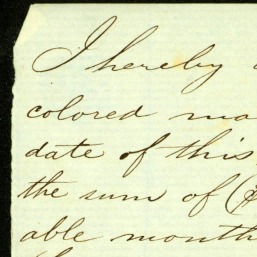 I hereby
colored ma
date of this
the sum of ($
able month